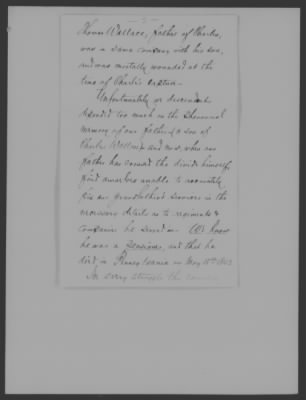 - 5 -
Thomas Wallace, father of Charles,
was in same company with his son,
and was mortally wounded at the
time of Charlie's capture -
Unfortunately our descendants
depended too much on the phenomenal
memory of our father, a son of
Charles Wallace and now, when our
father has crossed the divide himself,
find ourselves unable to accurately
give any grandfather's services in the
necessary details as to regiments &
companies he served in. We know
he was a pensioner, and that he
died in Pennsylvania on May 15th
In every struggle this